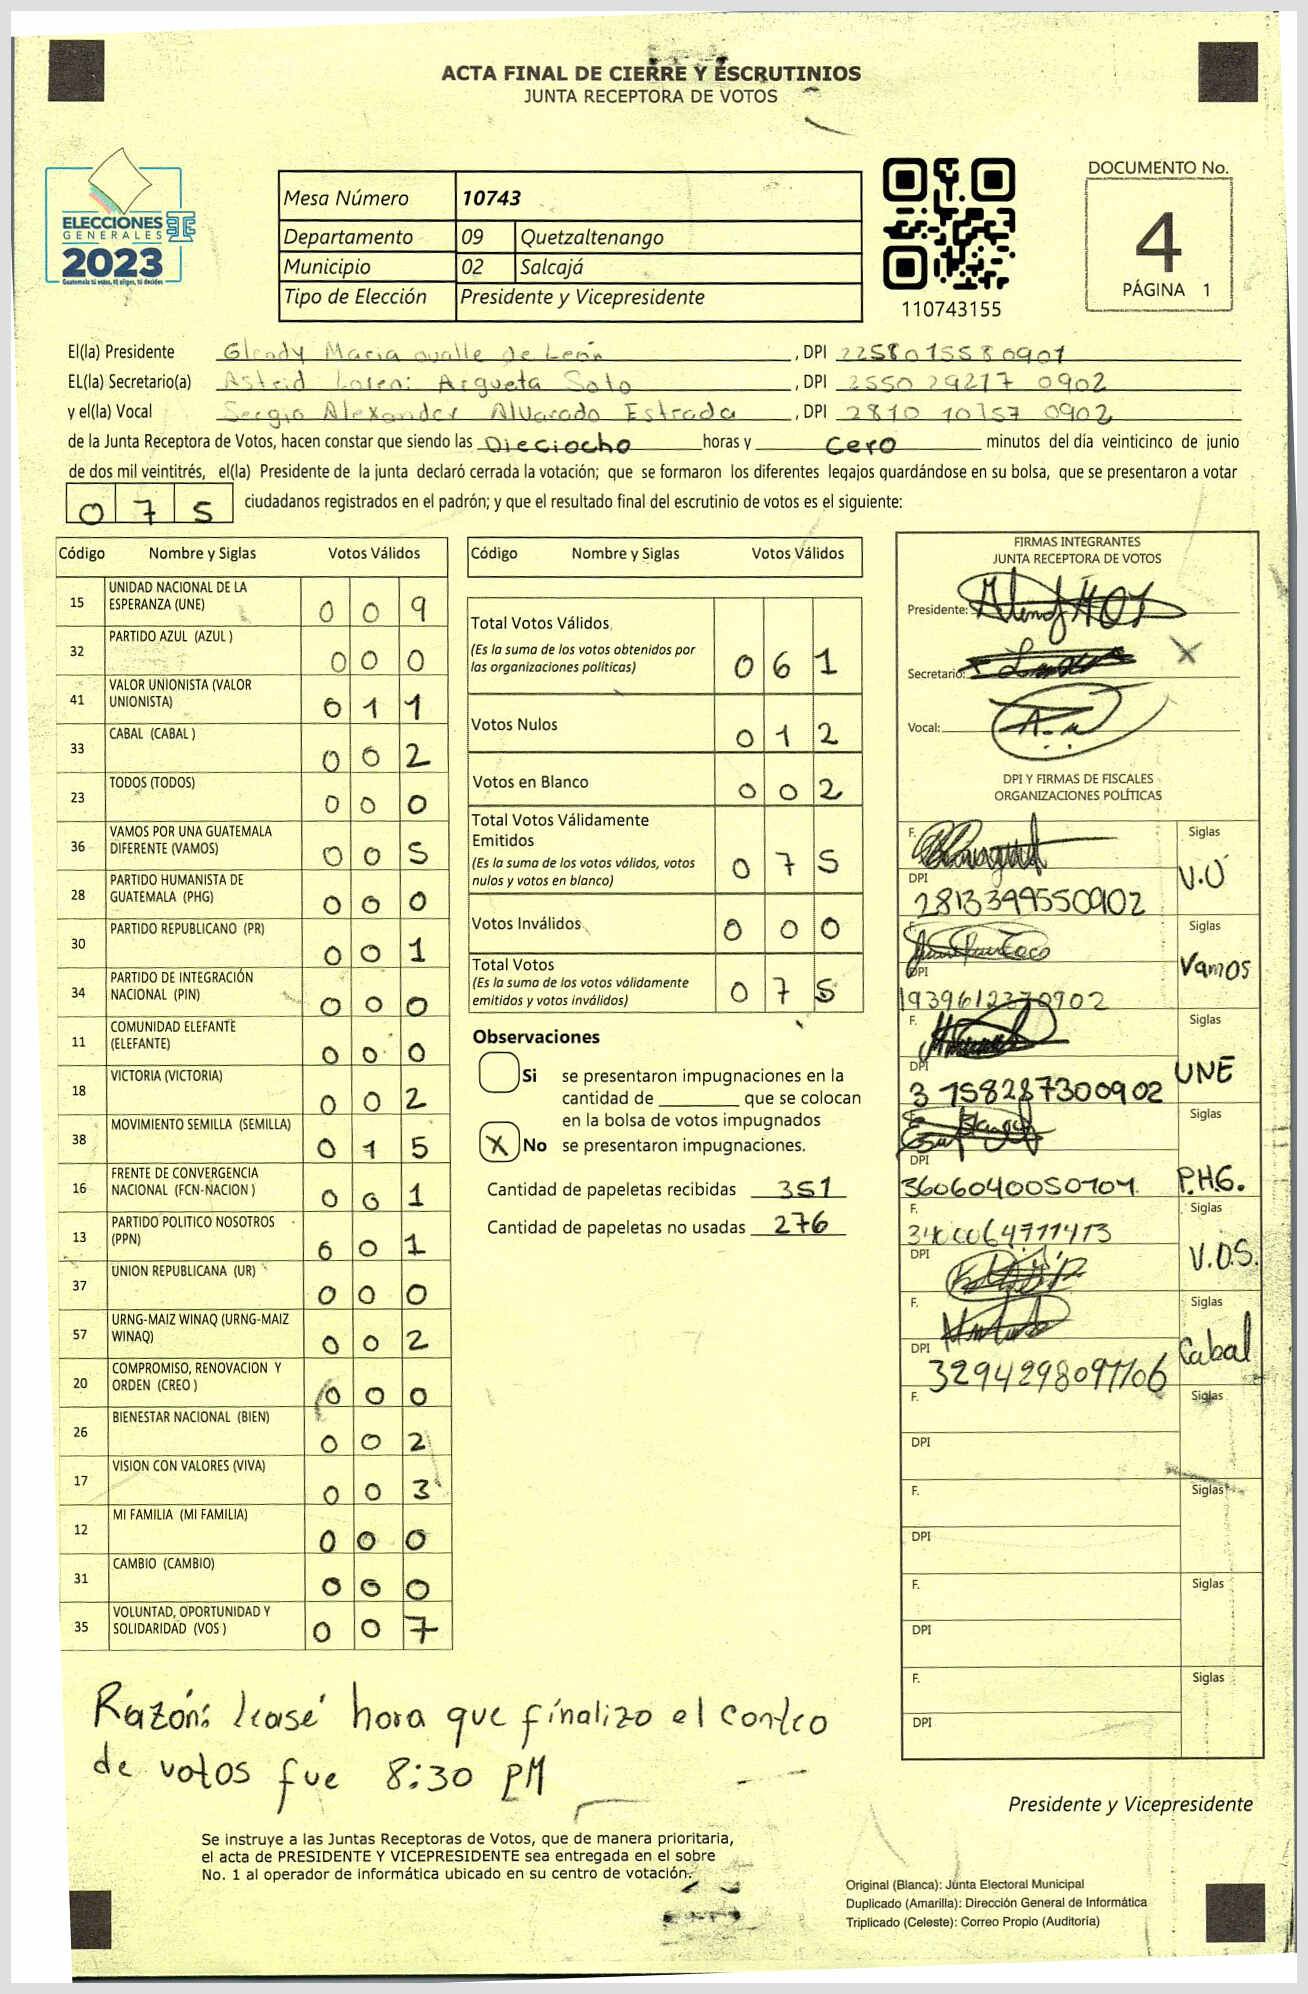 ACTA FINAL DE CIERRE Y ESCRUTINIOS
JUNTA RECEPTORA DE VOTOS
ELECCIONES
GENERALES
2023
Guatemala tú votas, tú eliges, tú decides
Mesa Número 10743
Departamento 09 Quetzaltenango
Municipio 02 Salcajá
Tipo de Elección Presidente y Vicepresidente
110743155
DOCUMENTO No.
4
PÁGINA 1
El(la) Presidente Glendy Maria ovalle de León , DPI 2258015580901
EL(la) Secretario(a) Astrid Argueta Soto , DPI 2550 29217 0902
y el(la) Vocal Sergio Alexander Alvarado Estrada , DPI 2810 10157 0902
de la Junta Receptora de Votos, hacen constar que siendo las Dieciocho horas y Cero minutos del día veinticinco de junio
de dos mil veintitrés, el(la) Presidente de la junta declaró cerrada la votación; que se formaron los diferentes legajos guardándose en su bolsa, que se presentaron a votar
075 ciudadanos registrados en el padrón; y que el resultado final del escrutinio de votos es el siguiente:
Código Nombre y Siglas Votos Válidos
15 UNIDAD NACIONAL DE LA ESPERANZA (UNE) 009
32 PARTIDO AZUL (AZUL ) 000
41 VALOR UNIONISTA (VALOR UNIONISTA) 011
33 CABAL (CABAL ) 002
23 TODOS (TODOS) 000
36 VAMOS POR UNA GUATEMALA DIFERENTE (VAMOS) 005
28 PARTIDO HUMANISTA DE GUATEMALA (PHG) 000
30 PARTIDO REPUBLICANO (PR) 001
34 PARTIDO DE INTEGRACIÓN NACIONAL (PIN) 000
11 COMUNIDAD ELEFANTE (ELEFANTE) 000
18 VICTORIA (VICTORIA) 002
38 MOVIMIENTO SEMILLA (SEMILLA) 015
16 FRENTE DE CONVERGENCIA NACIONAL (FCN-NACION ) 001
13 PARTIDO POLITICO NOSOTROS (PPN) 001
37 UNION REPUBLICANA (UR) 000
57 URNG-MAIZ WINAQ (URNG-MAIZ WINAQ) 002
20 COMPROMISO, RENOVACION Y ORDEN (CREO ) 000
26 BIENESTAR NACIONAL (BIEN) 002
17 VISION CON VALORES (VIVA) 003
12 MI FAMILIA (MI FAMILIA) 000
31 CAMBIO (CAMBIO) 000
35 VOLUNTAD, OPORTUNIDAD Y SOLIDARIDAD (VOS ) 007
Código Nombre y Siglas Votos Válidos
Total Votos Válidos 061
(Es la suma de los votos obtenidos por
las organizaciones políticas)
Votos Nulos 012
Votos en Blanco 002
Total Votos Válidamente
Emitidos 075
(Es la suma de los votos válidos, votos
nulos y votos en blanco)
Votos Inválidos 000
Total Votos 075
(Es la suma de los votos válidamente
emitidos y votos inválidos)
Observaciones
Si se presentaron impugnaciones en la
cantidad de ________ que se colocan
en la bolsa de votos impugnados
X No se presentaron impugnaciones.
Cantidad de papeletas recibidas 351
Cantidad de papeletas no usadas 276
FIRMAS INTEGRANTES
JUNTA RECEPTORA DE VOTOS
Presidente:
Secretario: X
Vocal:
DPI Y FIRMAS DE FISCALES
ORGANIZACIONES POLÍTICAS
F. Siglas
DPI 2813399550902 V.U
F. Siglas
DPI 1939612370902 Vamos
F. Siglas
DPI 3158287300902 UNE
F. Siglas
DPI 3606040050101 P.H.G.
F. Siglas
DPI V.O.S.
F. Siglas
DPI 3294298091106 Cabal
F. Siglas
DPI
F. Siglas
DPI
F. Siglas
DPI
F. Siglas
DPI
Razón: leasé hora que finalizo el conteo
de votos fue 8:30 PM
Presidente y Vicepresidente
Se instruye a las Juntas Receptoras de Votos, que de manera prioritaria,
el acta de PRESIDENTE Y VICEPRESIDENTE sea entregada en el sobre
No. 1 al operador de informática ubicado en su centro de votación.
Original (Blanca): Junta Electoral Municipal
Duplicado (Amarilla): Dirección General de Informática
Triplicado (Celeste): Correo Propio (Auditoría)